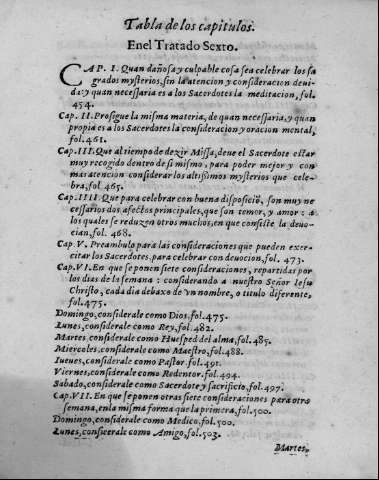 Tabla de los capitulos.
En el Tratado Sexto.
CAP. I. Quan dañosa y culpable cosa sea celebrar los sa
grados mysterios, sin la atencion y consideracion deui-
da: y quan necessaria es a los Sacerdotes la meditacion, fol.
454.
Cap. II. Prosigue la misma materia, de quan necessaria, y quan
propia es a los Sacerdotes la consideracion y oracion mental,
fol. 461.
Cap. III. Que al tiempo de dezir Missa, deue el Sacerdote estar
muy recogido dentro de si mismo, para poder mejor y con
mas atencion considerar los altissimos mysterios que cele-
bra, fol. 465.
Cap. IIII. Que para celebrar con buena disposiciõ, son muy ne
cessarios dos afectos principales, que son temor, y amor: a
los quales se reduzen otros muchos, en que consiste la deuo-
cion, fol. 468.
Cap. V. Preambulo para las consideraciones que pueden exer-
citar los Sacerdotes, para celebrar con deuocion, fol. 473.
Cap. VI. En que se ponen siete consideraciones, repartidas por
los dias de la semana: considerando a nuestro Señor Iesu
Christo, cada dia debaxo de vn nombre, o titulo diferente,
fol. 475.
Domingo, considerale como Dios, fol. 475.
Lunes, considerale como Rey, fol. 482.
Martes, considerale como Huesped del alma, fol. 485.
Miercoles, considerale como Maestro, fol. 488.
Iueues, considerale como Pastor, fol. 491.
Viernes, considerale como Redentor, fol. 494.
Sabado, considerale como Sacerdote y sacrificio, fol. 497.
Cap. VII. En que se ponen otras siete consideraciones para otra
semana, en la misma forma que la primera, fol. 500.
Domingo, considerale como Medico, fol. 500.
Lunes, considerale como Amigo, fol. 503.
Martes,